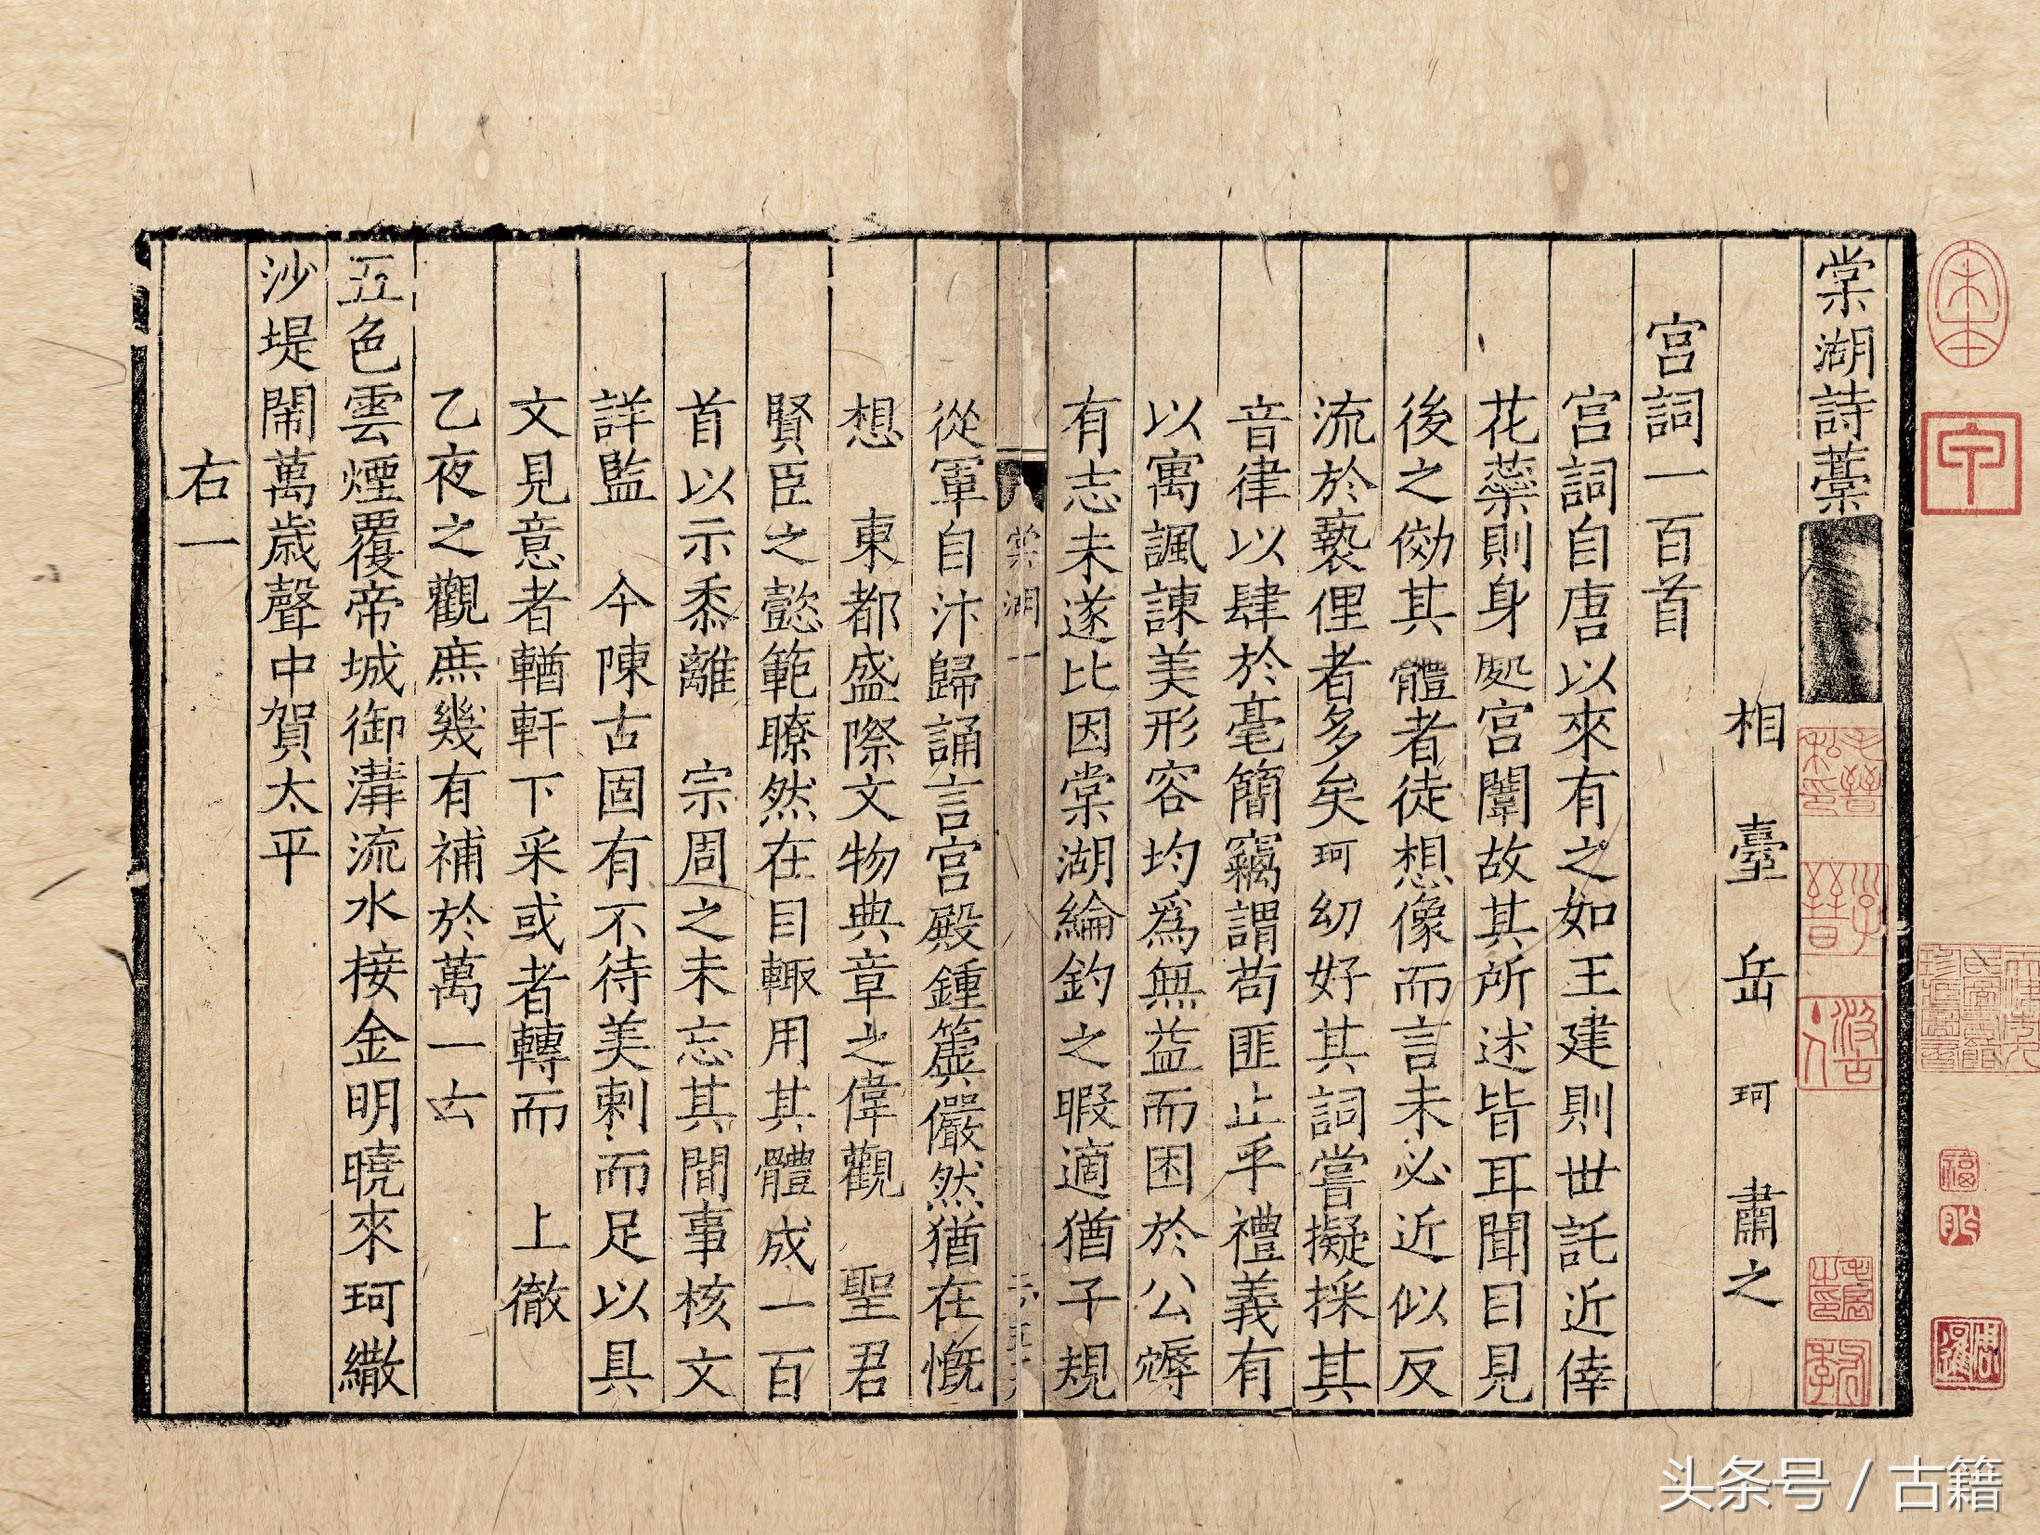 棠湖詩藁
相臺岳珂肅之
宮詞一百首
宮詞自唐以來有之如王建則世託近倖
花蘂則身處宮闈故其所述皆耳聞目見
後之効其體者徒想像而言未必近似反
流於褻俚者多矣珂幼好其詞嘗擬採其
音律以肆於毫簡竊謂苟匪止乎禮義有
以寓諷諫美形容均爲無益而困於公嫥
有志未遂比因棠湖綸釣之暇適猶子規
棠湖 一
從軍自汴歸誦言宮殿鍾簴儼然猶在慨
想 東都盛際文物典章之偉觀 聖君
賢臣之懿範瞭然在目輒用其體成一百
首以示黍離 宗周之未忘其間事核文
詳監 今陳古固有不待美刺而足以具
文見意者輶軒下采或者轉而 上徹
乙夜之觀庶幾有補於萬一云
五色雲煙覆帝城御溝流水接金明曉來珂繖
沙堤閙萬歲聲中賀太平
右一
头条号 / 古籍